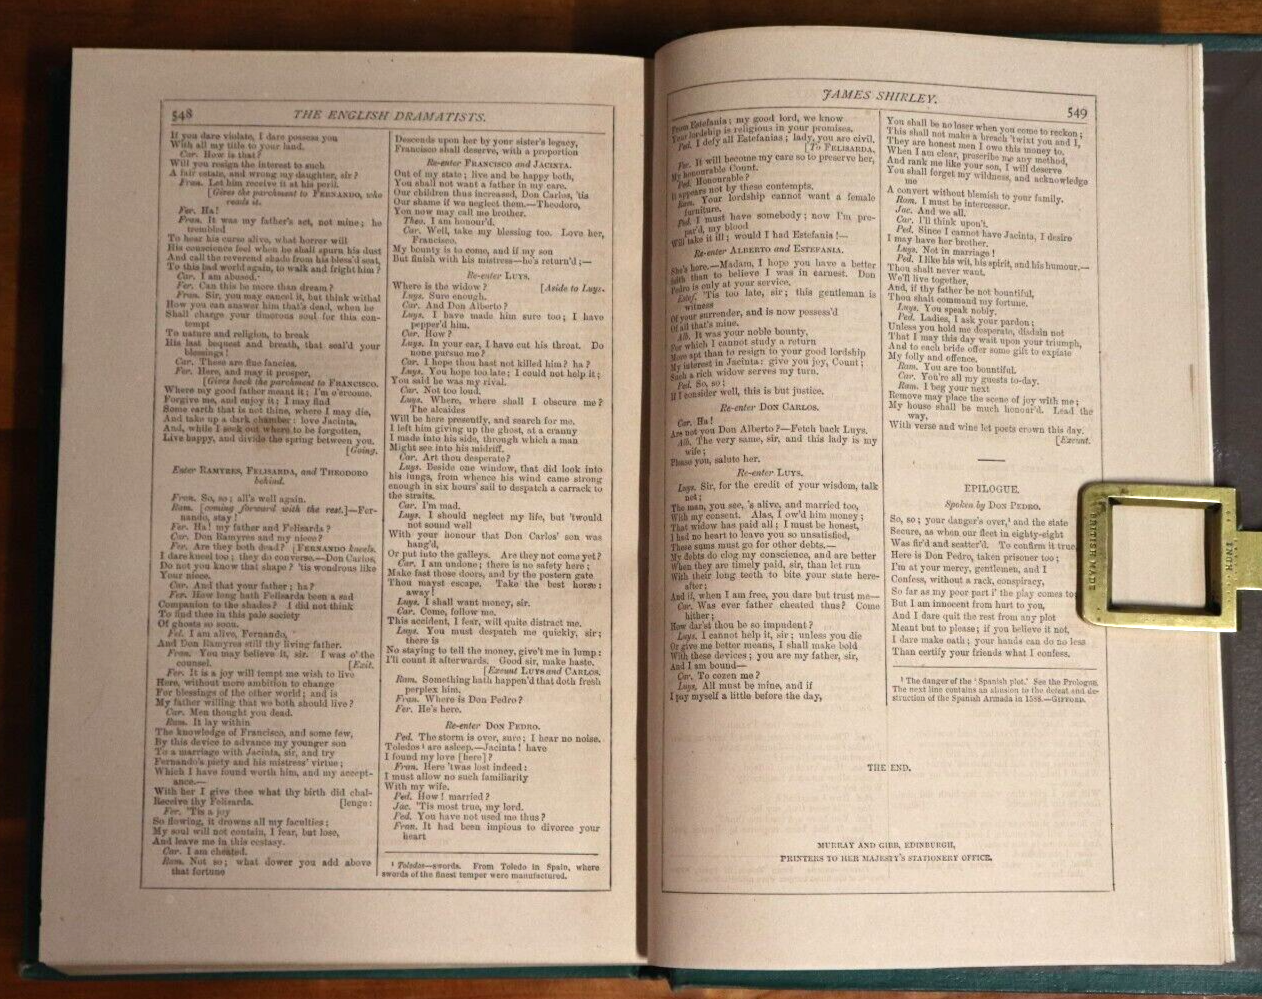 548
THE ENGLISH DRAMATISTS.
If you dare violate, I dare possess you
With all my title to your land.
Car. How is that?
Will you resign the interest to such
A fair estate, and wrong my daughter, sir?
Fran. Let him receive it at his peril.
[Gives the parchment to FERNANDO, who
reads it.
Fer. Ha!
Fran. It was my father's act, not mine; he
trembled
To hear his curse alive, what horror will
His conscience feel when he shall spurn his dust
And call the reverend shade from his bless'd seat,
To this bad world again, to walk and fright him?
Car. I am abused.
Fer. Can this be more than dream?
Fran. Sir, you may cancel it, but think withal
How you can answer him that's dead, when he
Shall charge your timorous soul for this con-
tempt
To nature and religion, to break
His last bequest and breath, that seal'd your
blessings!
Car. These are fine fancies.
Fer. Here, and may it prosper,
[Gives back the parchment to FRANCISCO.
Where my good father meant it; I'm o'ercome.
Forgive me, and enjoy it; I may find
Some earth that is not thine, where I may die,
And take up a dark chamber: love Jacinta,
And, while I seek out where to be forgotten,
Live happy, and divide the spring between you.
[Going.
Enter RAMYRES, FELISARDA, and THEODORO
behind.
Fran. So, so; all's well again.
Ram. [coming forward with the rest.]—Fer-
nando, stay!
Fer. Ha! my father and Felisarda?
Car. Don Ramyres and my niece?
Fer. Are they both dead? [FERNANDO kneels.
I dare kneel too; they do converse.—Don Carlos,
Do not you know that shape? 'tis wondrous like
Your niece.
Car. And that your father; ha?
Fer. How long hath Felisarda been a sad
Companion to the shades? I did not think
To find thee in this pale society
Of ghosts so soon.
Fel. I am alive, Fernando,
And Don Ramyres still thy living father.
Fran. You may believe it, sir. I was o' the
counsel. [Exit.
Fer. It is a joy will tempt me wish to live
Here, without more ambition to change
For blessings of the other world; and is
My father willing that we both should live?
Car. Men thought you dead.
Ram. It lay within
The knowledge of Francisco, and some few,
By this device to advance my younger son
To a marriage with Jacinta, sir, and try
Fernando's piety and his mistress' virtue;
Which I have found worth him, and my accept-
ance.—
With her I give thee what thy birth did chal-
Receive thy Felisarda. [lenge:
Fer. 'Tis a joy
So flowing, it drowns all my faculties;
My soul will not contain, I fear, but lose,
And leave me in this ecstasy.
Car. I am cheated.
Ram. Not so; what dower you add above
that fortune
Descends upon her by your sister's legacy,
Francisco shall deserve, with a proportion
Re-enter FRANCISCO and JACINTA.
Out of my state; live and be happy both,
You shall not want a father in my care.
Our children thus increased, Don Carlos, 'tis
Our shame if we neglect them.—Theodoro,
You now may call me brother.
Theo. I am honour'd.
Car. Well, take my blessing too. Love her,
Francisco.
My bounty is to come, and if my son
But finish with his mistress—he's return'd;—
Re-enter LUYS.
Where is the widow? [Aside to Luys.
Luys. Sure enough.
Car. And Don Alberto?
Luys. I have made him sure too; I have
pepper'd him.
Car. How?
Luys. In your ear, I have cut his throat. Do
none pursue me?
Car. I hope thou hast not killed him? ha?
Luys. You hope too late; I could not help it;
You said he was my rival.
Car. Not too loud.
Luys. Where, where shall I obscure me?
The alcaides
Will be here presently, and search for me.
I left him giving up the ghost, at a cranny
I made into his side, through which a man
Might see into his midriff.
Car. Art thou desperate?
Luys. Beside one window, that did look into
his lungs, from whence his wind came strong
enough in six hours' sail to despatch a carrack to
the straits.
Car. I'm mad.
Luys. I should neglect my life, but 'twould
not sound well
With your honour that Don Carlos' son was
hang'd,
Or put into the galleys. Are they not come yet?
Car. I am undone; there is no safety here;
Make fast those doors, and by the postern gate
Thou mayst escape. Take the best horse:
away!
Luys. I shall want money, sir.
Car. Come, follow me.
This accident, I fear, will quite distract me.
Luys. You must despatch me quickly, sir;
there is
No staying to tell the money, give't me in lump:
I'll count it afterwards. Good sir, make haste.
[Exeunt LUYS and CARLOS.
Ram. Something hath happen'd that doth fresh
perplex him.
Fran. Where is Don Pedro?
Fer. He's here.
Re-enter DON PEDRO.
Ped. The storm is over, sure; I hear no noise.
Toledos¹ are asleep.—Jacinta! have
I found my love [here]?
Fran. Here 'twas lost indeed:
I must allow no such familiarity
With my wife.
Ped. How! married?
Jac. 'Tis most true, my lord.
Ped. You have not used me thus?
Fran. It had been impious to divorce your
heart
¹ Toledos—swords. From Toledo in Spain, where
swords of the finest temper were manufactured.
JAMES SHIRLEY.
549
From Estefania; my good lord, we know
Your lordship is religious in your promises.
Ped. I defy all Estefanias; lady, you are civil.
[To FELISARDA.
Fer. It will become my care so to preserve her,
My honourable Count.
Ped. Honourable?
It appears not by these contempts.
Ram. Your lordship cannot want a female
furniture.
Ped. I must have somebody; now I'm pre-
par'd, my blood
Will take it ill; would I had Estefania!—
Re-enter ALBERTO and ESTEFANIA.
She's here.—Madam, I hope you have a better
faith than to believe I was in earnest. Don
Pedro is only at your service.
Estef. 'Tis too late, sir; this gentleman is
witness
Of your surrender, and is now possess'd
Of all that's mine.
Alb. It was your noble bounty,
For which I cannot study a return
More apt than to resign to your good lordship
My interest in Jacinta: give you joy, Count;
Such a rich widow serves my turn.
Ped. So, so;
If I consider well, this is but justice.
Re-enter DON CARLOS.
Car. Ha!
Are not you Don Alberto?—Fetch back Luys.
Alb. The very same, sir, and this lady is my
wife;
Please you, salute her.
Re-enter LUYS.
Luys. Sir, for the credit of your wisdom, talk
not;
The man, you see, 's alive, and married too,
With my consent. Alas, I ow'd him money;
That widow has paid all; I must be honest,
I had no heart to leave you so unsatisfied,
These sums must go for other debts.—
My debts do clog my conscience, and are better
When they are timely paid, sir, than let run
With their long teeth to bite your state here-
after;
And if, when I am free, you dare but trust me—
Car. Was ever father cheated thus? Come
hither;
How dar'st thou be so impudent?
Luys. I cannot help it, sir; unless you die
Or give me better means, I shall make bold
With these devices; you are my father, sir,
And I am bound—
Car. To cozen me?
Luys. All must be mine, and if
I pay myself a little before the day,
You shall be no loser when you come to reckon;
This shall not make a breach 'twixt you and I,
They are honest men I owe this money to.
When I am clear, proscribe me any method,
And rank me like your son, I will deserve
You shall forget my wildness, and acknowledge
me
A convert without blemish to your family.
Ram. I must be intercessor.
Jac. And we all.
Car. I'll think upon't.
Ped. Since I cannot have Jacinta, I desire
I may have her brother.
Luys. Not in marriage!
Ped. I like his wit, his spirit, and his humour,—
Thou shalt never want,
We'll live together,
And, if thy father be not bountiful,
Thou shalt command my fortune.
Luys. You speak nobly.
Ped. Ladies, I ask your pardon;
Unless you hold me desperate, disdain not
That I may this day wait upon your triumph,
And to each bride offer some gift to expiate
My folly and offence.
Ram. You are too bountiful.
Car. You're all my guests to-day.
Ram. I beg your next
Remove may place the scene of joy with me;
My house shall be much honour'd. Lead the
way,
With verse and wine let poets crown this day.
[Exeunt.
EPILOGUE.
Spoken by DON PEDRO.
So, so; your danger's over,¹ and the state
Secure, as when our fleet in eighty-eight
Was fir'd and scatter'd. To confirm it true,
Here is Don Pedro, taken prisoner too;
I'm at your mercy, gentlemen, and I
Confess, without a rack, conspiracy,
So far as my poor part i' the play comes to:
But I am innocent from hurt to you,
And I dare quit the rest from any plot
Meant but to please; if you believe it not,
I dare make oath; your hands can do no less
Than certify your friends what I confess.
¹ The danger of the 'Spanish plot.' See the Prologue.
The next line contains an allusion to the defeat and de-
struction of the Spanish Armada in 1588.—GIFFORD.
THE END.
MURRAY AND GIBB, EDINBURGH,
PRINTERS TO HER MAJESTY'S STATIONERY OFFICE.
BRITISH MADE